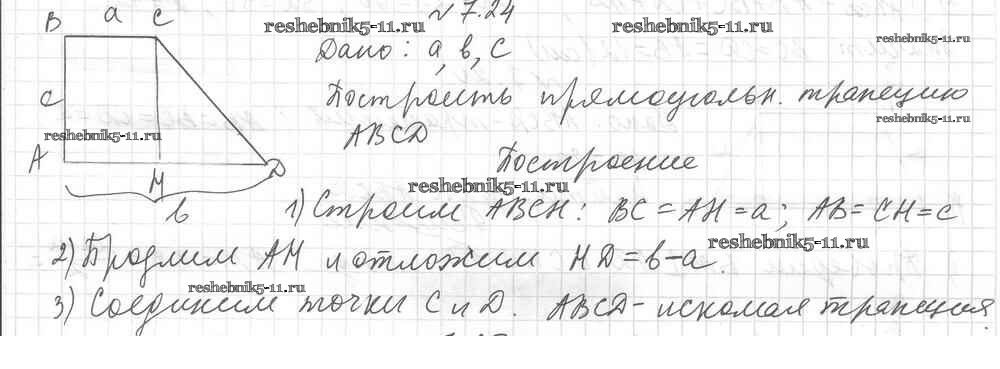 № 7.24
reshebnik5-11.ru
reshebnik5-11.ru
reshebnik5-11.ru
B a C
Дано: a, b, c
Построить прямоугольн. трапецию
ABCD
reshebnik5-11.ru
c
reshebnik5-11.ru
A H D
Построение
reshebnik5-11.ru
b
1) Строим ABCH: BC = AH = a; AB = CH = c
reshebnik5-11.ru
2) Продлим AH и отложим HD = b-a.
reshebnik5-11.ru
3) Соединим точки C и D. ABCD - искомая трапеция